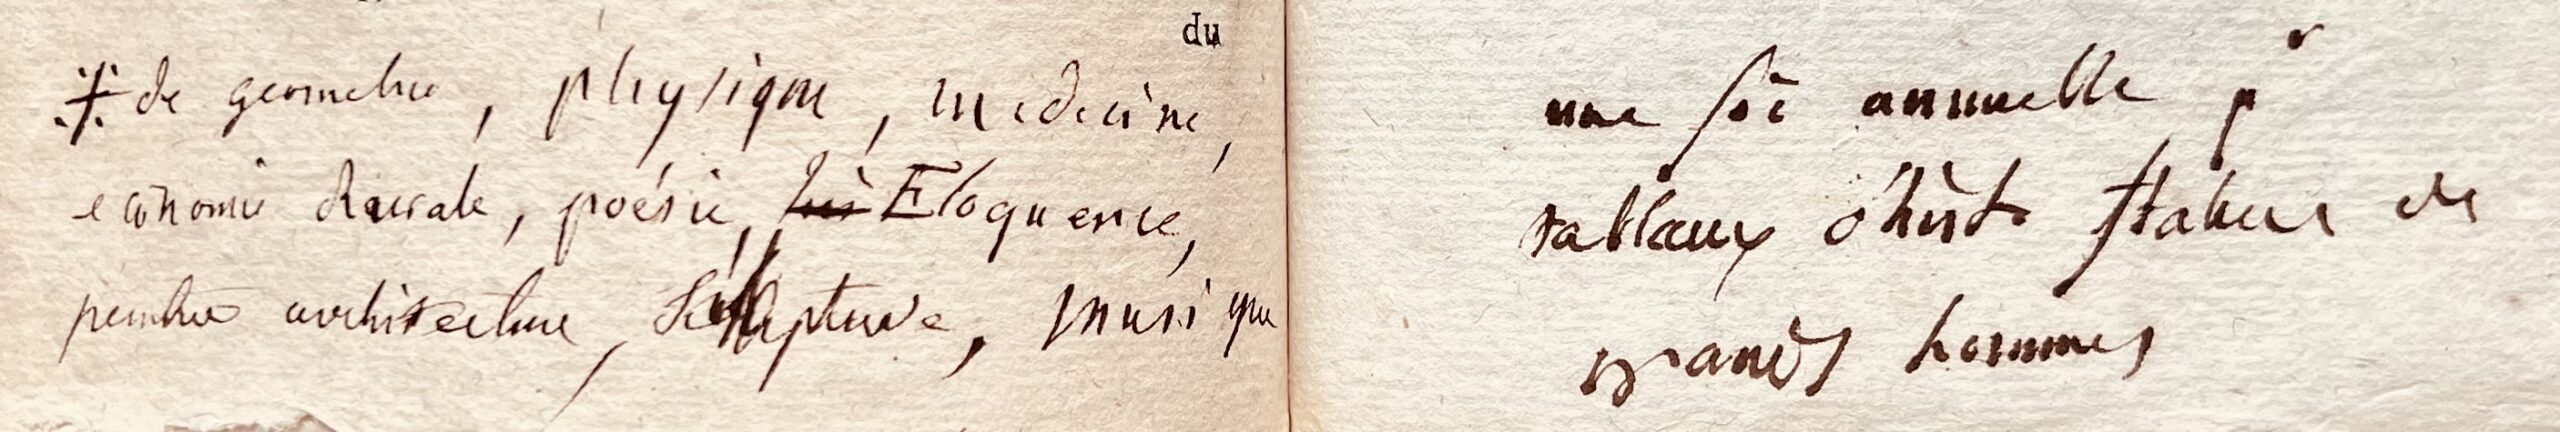 du
⁜ de geometrie, physique, medecine,
economie Rurale, poésie, Eloquence,
peinture architecture, Sculpture, musique
une annuelle pr
tableaux d'histo statues de
grands hommes